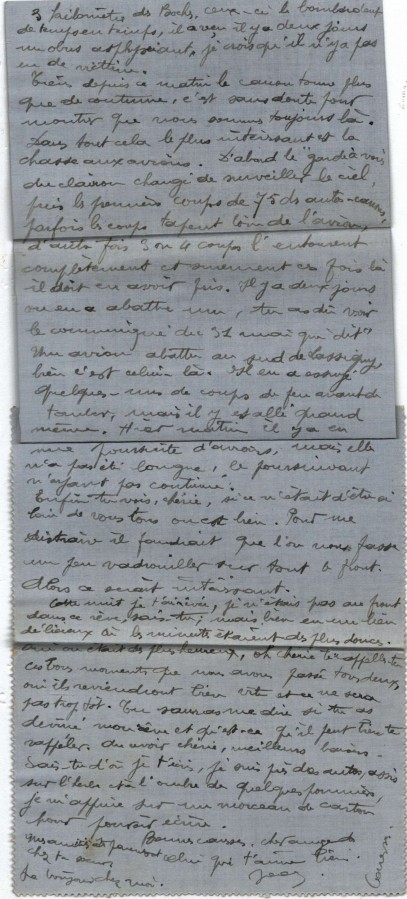 3 kilomètres des Bochs, ceux-ci le bombardent
de temps en temps, il y a deux jours
un obus asphyxiant, je crois qu'il n'y a pas
eu de victime.
Tiens depuis ce matin le canon tonne plus
que de coutume, c'est sans doute pour
montrer que nous sommes toujours là.
Dans tout cela le plus intéressant est la
chasse aux avions. D'abord le "garde à vous"
du clairon chargé de surveiller le ciel,
puis les premiers coups de 75 ds autos-canons,
parfois les coups tapent loin de l'avion,
d'autre fois 3 ou 4 coups l'entourent
complètement et surement ces fois là
il doit en avoir pris. Il y a deux jours
on en a abattu un, tu as dû voir
le communiqué du 31 mai qui dit
"Un avion abattu au sud de Lassigny"
bien c'est celui là. Il en a essuyé
quelques-uns de coups de feu avant de
tomber, mais il y est allé quand
même. Hier matin il y a eu
une poursuite d'avions, mais elle
n'a pas été longue, le poursuivant
n'ayant pas continué.
Enfin tu vois, chérie, si ce n'était d'être si
loin de vous tous on est bien. Pour me
distraire il faudrait que l'on nous fasse
un peu vadrouiller sur tout le front.
Alors ce serait intéressant.
Cette nuit je t'ai rêvée, je n'étais pas au front
dans ce rêve, sais-tu; mais bien en un lieu
délicieux où les minutes étaient des plus douces.
on était des plus heureux, oh chérie te rappelles-tu
ces bons moments que nous avons passé tous deux,
oui ils reviendront bien vite et ce ne sera
pas trop tôt. Tu sauras me dire si tu as
deviné mon rêve et qu'est-ce qu'il peut bien te
rappeler. Au revoir chérie, meilleurs baisers.
Sais-tu d'où je t'écris, je suis près des autos, assis
sur l'herbe et à l'ombre de quelques pommiers,
je m'appuie sur un morceau de carton
pour pouvoir écrire.
Bonnes caresses,
celui qui t'aime bien.
chez ta soeur
Le bonjour chez moi.